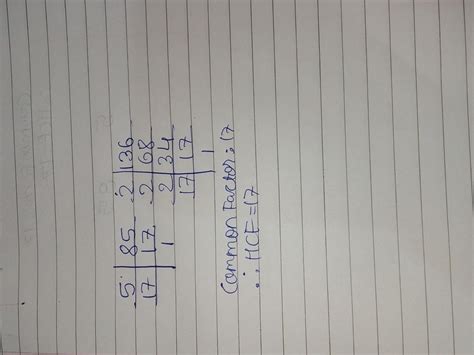 5 | 85   2 | 136
17 | 17   2 | 68
1   2 | 34
17 | 17
1
Common Factor: 17
∴ HCF = 17